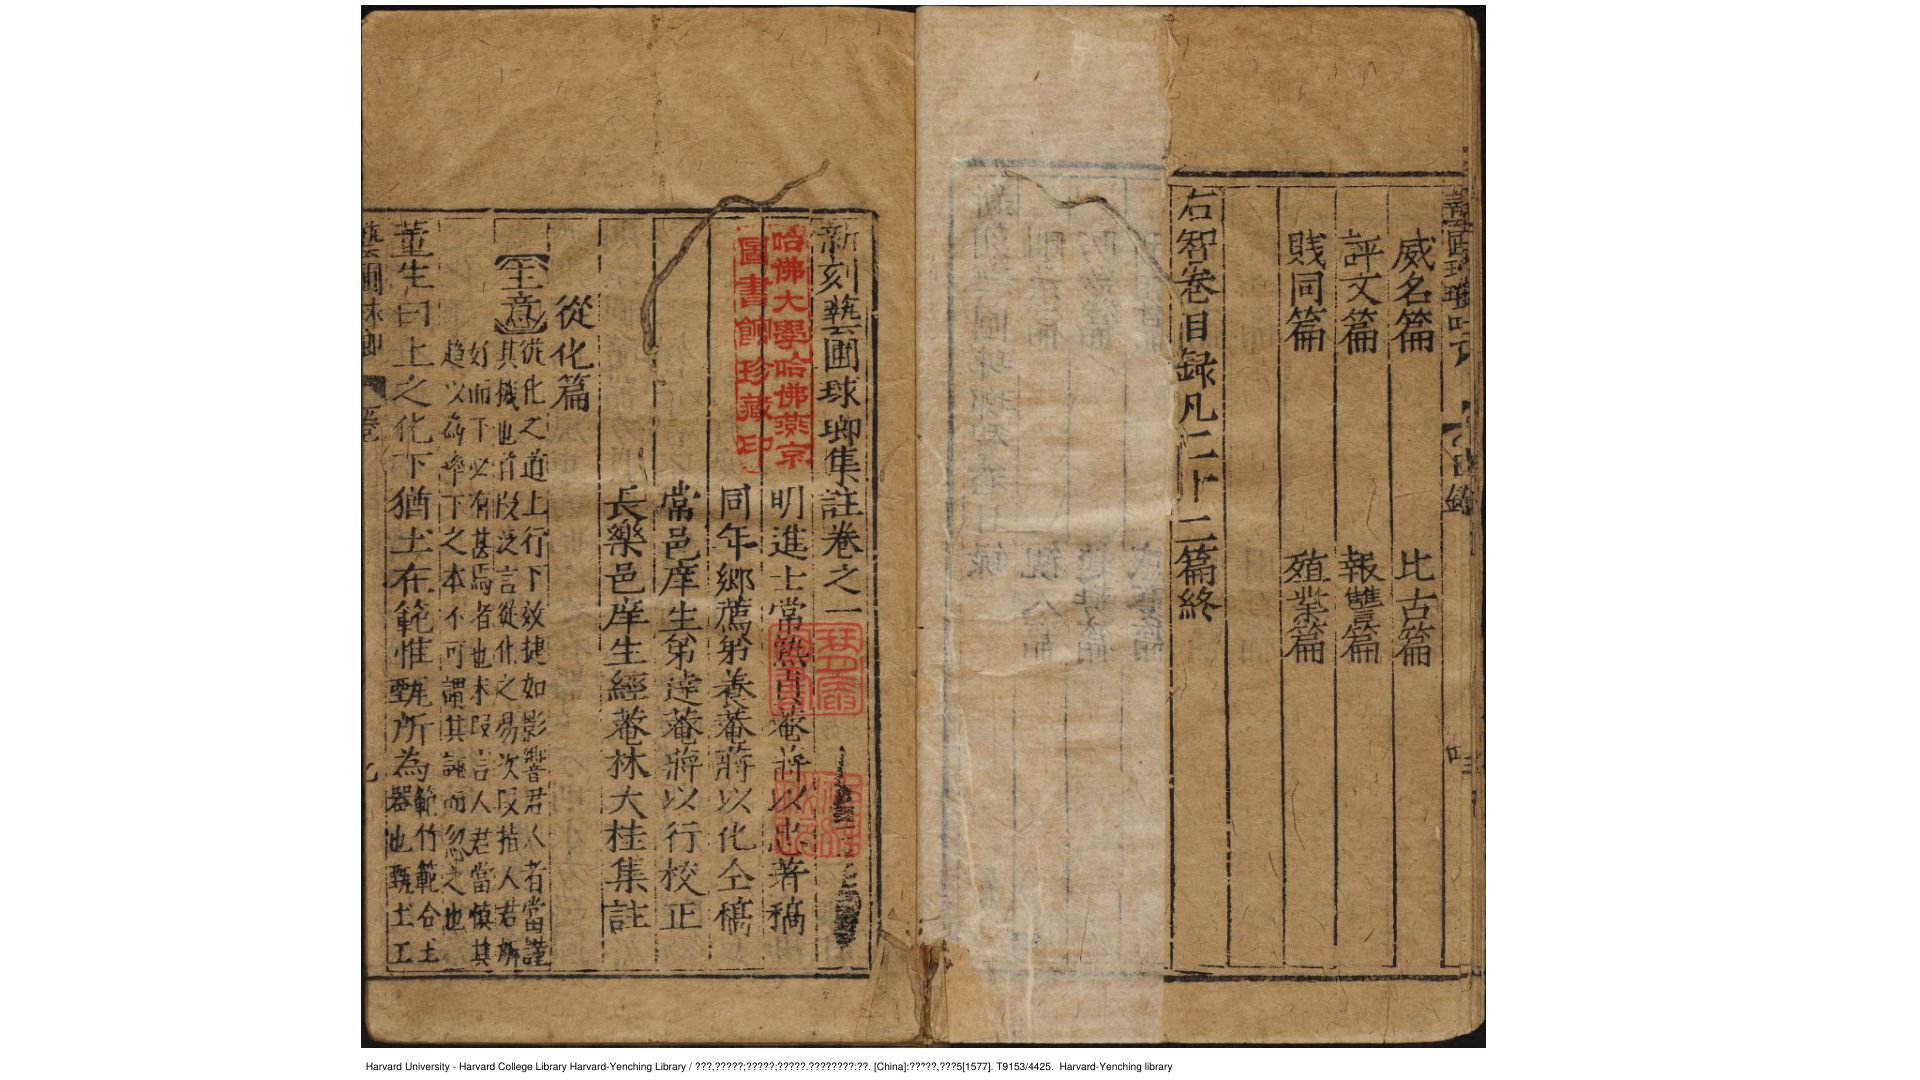 威名篇 比古篇
評文篇 報讐篇
賤同篇 殖業篇
右智卷目録凡二十二篇終
新刻藝圃球瑯集註卷之一
明進士常熟貞菴蔣以忠著稿
同年鄉薦弟養菴蔣以化仝稿
常邑庠生弟逹菴蔣以行校正
長樂邑庠生經菴林大桂集註
從化篇
主意
從化之道上行下效捷如影響君人者當謹
其機也首段泛言從化之易次段指人君所
好而下必有甚焉者也末段言人君當慎其
趋以為率下之本不可謂其誣而忽之也
董生曰上之化下猶土在範惟甄所為
範竹範合土
器也甄土工
哈佛大學哈佛燕京
圖書館珍藏印
Harvard University - Harvard College Library Harvard-Yenching Library / ???,?????;?????;?????.????????:??. [China]:?????,???5[1577]. T9153/4425. Harvard-Yenching library